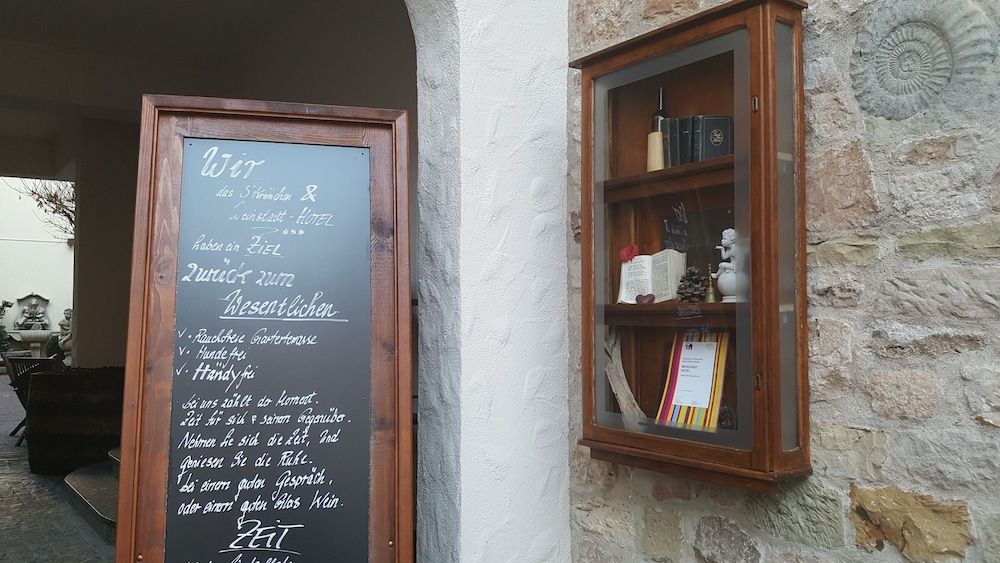 Wir
das S'Krönchen &
Weinstadt-HOTEL
***
haben ein ZIEL
zurück zum
Wesentlichen
✓ • Rauchfreie Gartenterrasse
✓ • Hundefrei
✓ • Handyfrei
bei uns zählt der Moment.
Zeit für sich & seinem Gegenüber.
Nehmen Sie sich die Zeit, und
geniesen Sie die Ruhe.
bei einem guten Gespräch,
oder einem guten Glas Wein.
ZEIT
WEINSTADT
HOTEL